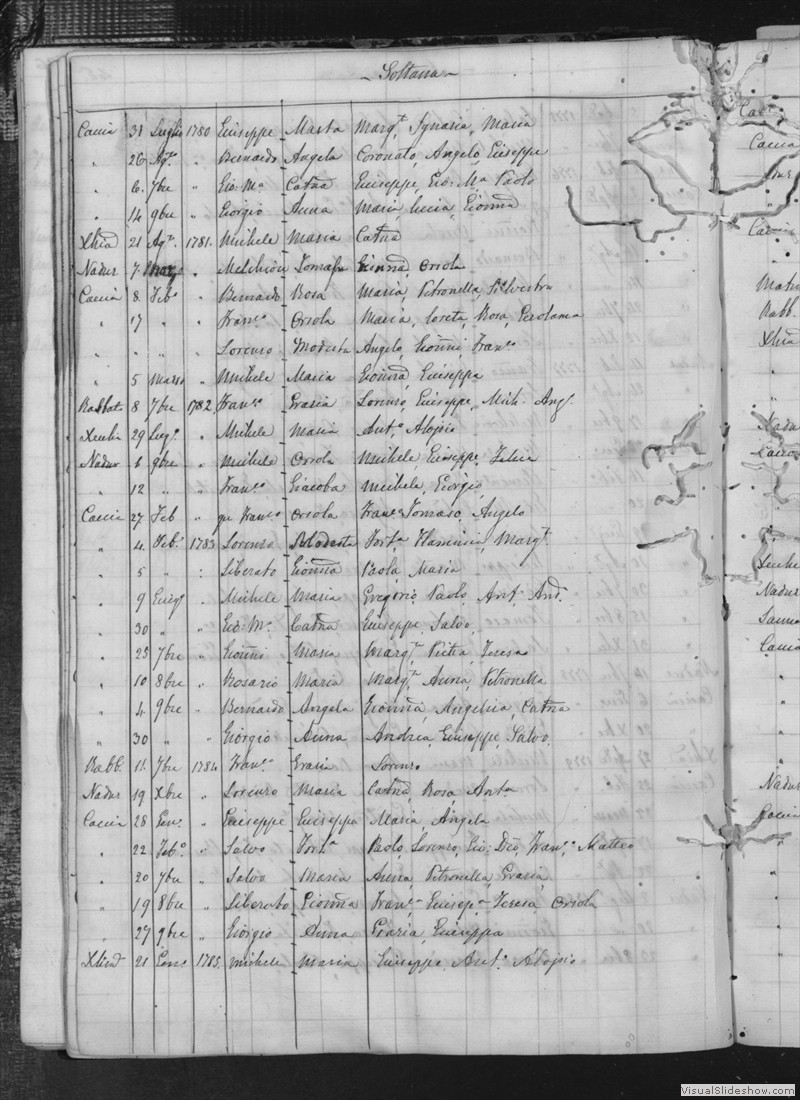 Sultana
Caccia 31 Luglio 1780 Giuseppe Marta Margt. Ignazia, Maria
" 26 Agto. " Bernardo Angela Coronato, Angelo Giuseppe
" 6 7bre " Gio: Ma. Catna Giuseppe, Gio: Ma. Paolo
" 14 9bre " Giorgio Anna Maria, Lucia, Gionna
Xhia 21 Agt. 1781. Michele Maria Catna
Nadur 7 " Melchior Tomasa Gionna, Orsola
Caccia 8 Feb. " Bernardo Rosa Maria, Petronella, Silvestra
" 17 " " Franco. Orsola Maria, Loreta, Rosa, Gerolama
" " " Lorenzo Modesta Angelo, Gionni, Franco.
" 5 Marzo " Michele Maria Gionna, Giuseppa
Rabbat 8 7bre 1782 Franco. Grazia Lorenzo, Giuseppe, Mich. Ang.
Xeukia 29 Lug. " Michele Maria Anto. Aloisio
Nadur 6 9bre " Michele Orsola Michele, Giuseppe, Felice
" 12 " " Franco. Giacoba Michele, Giorgio,
Caccia 27 Feb " qu Franco Orsola Franco. Tomaso, Angelo
" 4. Feb. 1783 Lorenzo Modesta Forta Flaminia, Margt.
" 5 " : Liberato Gionna Paola, Maria
" 9 Giug. " Michele Maria Gregorio, Paolo, Ant. And.
" 30 " " Gio: Ma. Catna Giuseppe, Salvo,
" 25 7bre " Gionni Maria Margt. Pietra, Teresa
" 10 8bre " Rosario Maria Margt. Anna, Petronella
" 4 9bre " Bernardo Angela Gionna, Angelica, Catna
" 30 " " Giorgio Anna Andrea, Giuseppe, Salvo,
Rabb. 11 7bre 1784 Franco. Grazia Lorenzo
Nadur 19 Xbre " Lorenzo Maria Catna, Rosa, Anta
Caccia 28 Gen. " Giuseppe Giuseppa Maria, Angela
" 22 Febo. " Salvo Forta Paolo, Lorenzo, Gio: Deo, Franco. Matteo
" 20 7bre " Salvo Maria Anna, Petronella, Grazia,
" 19 8bre " Liberato Gionna Franca. Giusepa. Teresa, Orsola
" 27 9bre " Giorgio Anna Grazia, Giuseppa
Xhia 21 Gen. 1785. Michele Maria Giuseppe, Ant. Aloisio
Caccia
Nadur
Nadur
Caccia
Nadur
VisualSlideshow.com